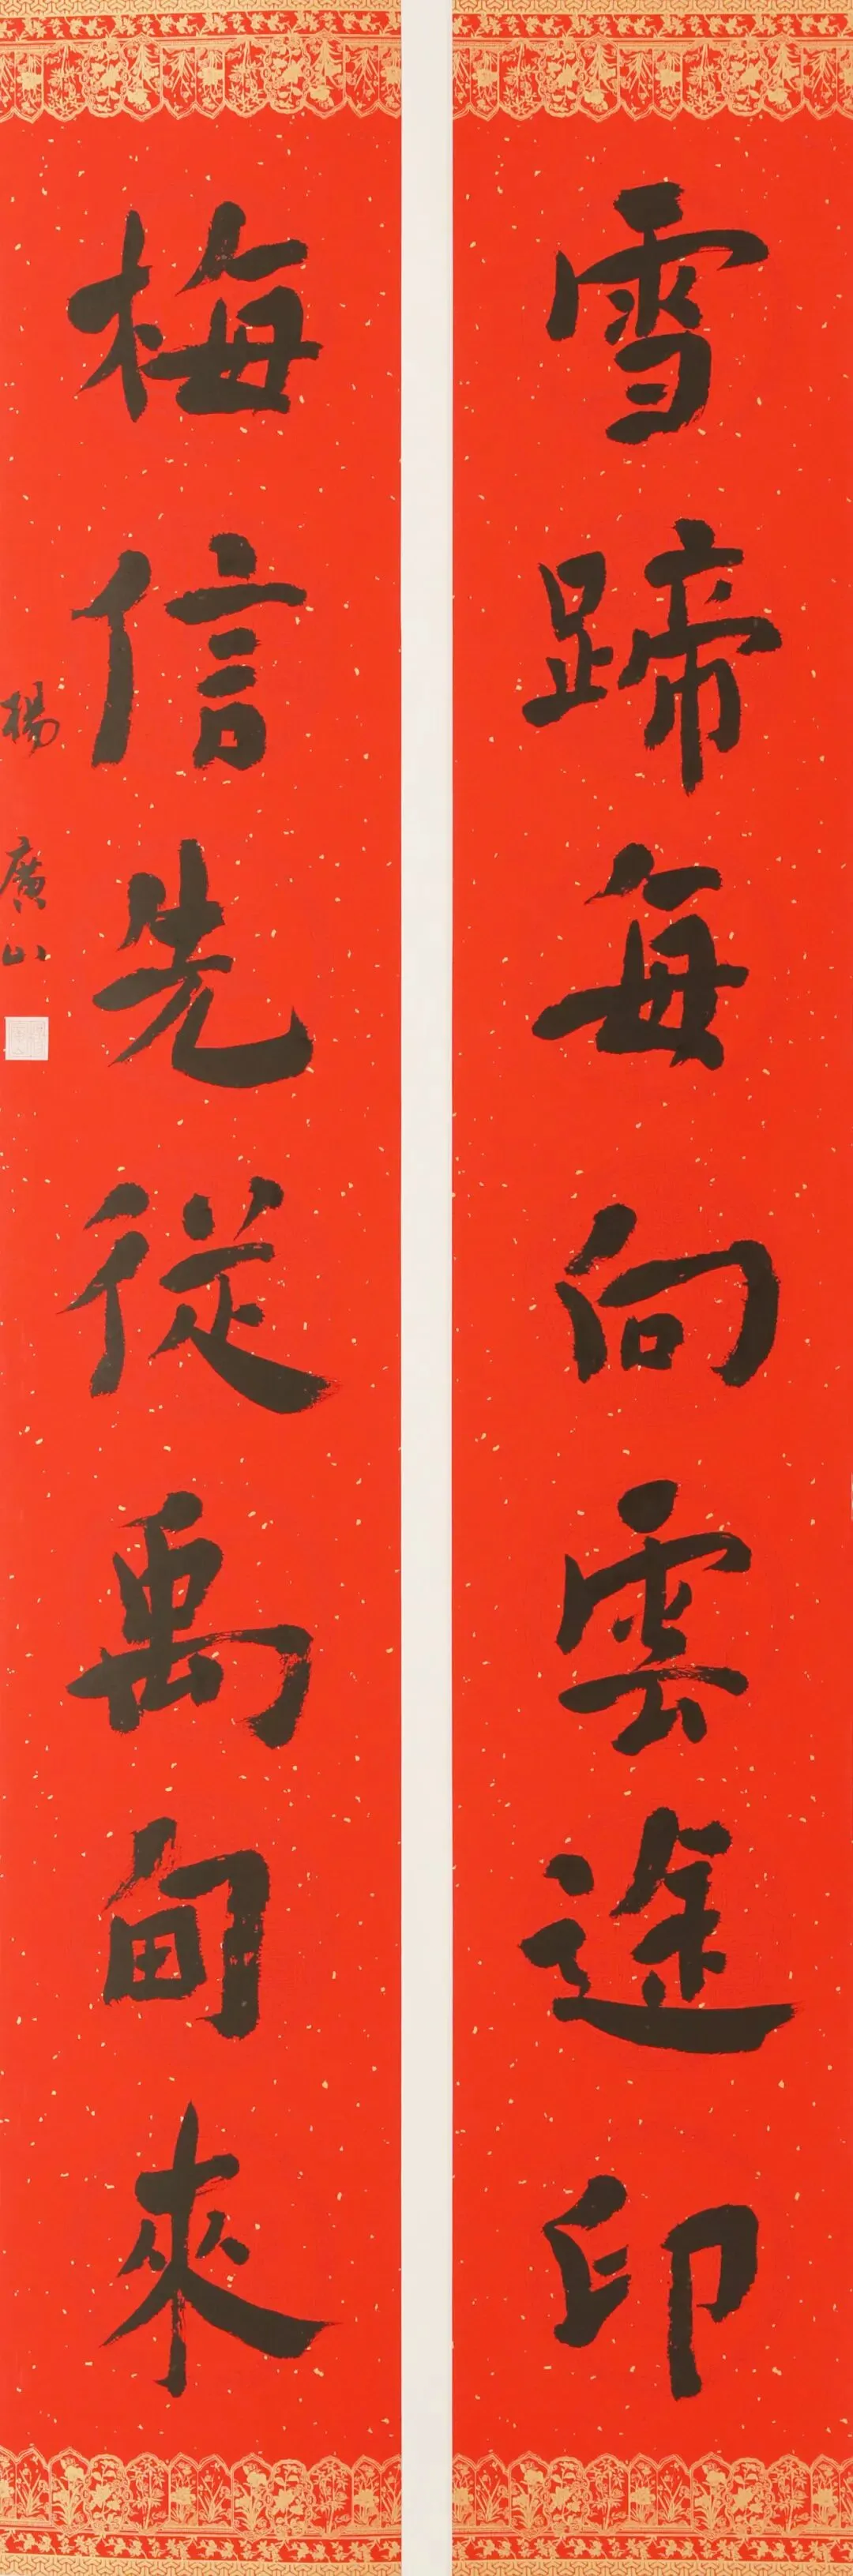 雪蹄每向雲途印
梅信先從禹甸來
楊廣山